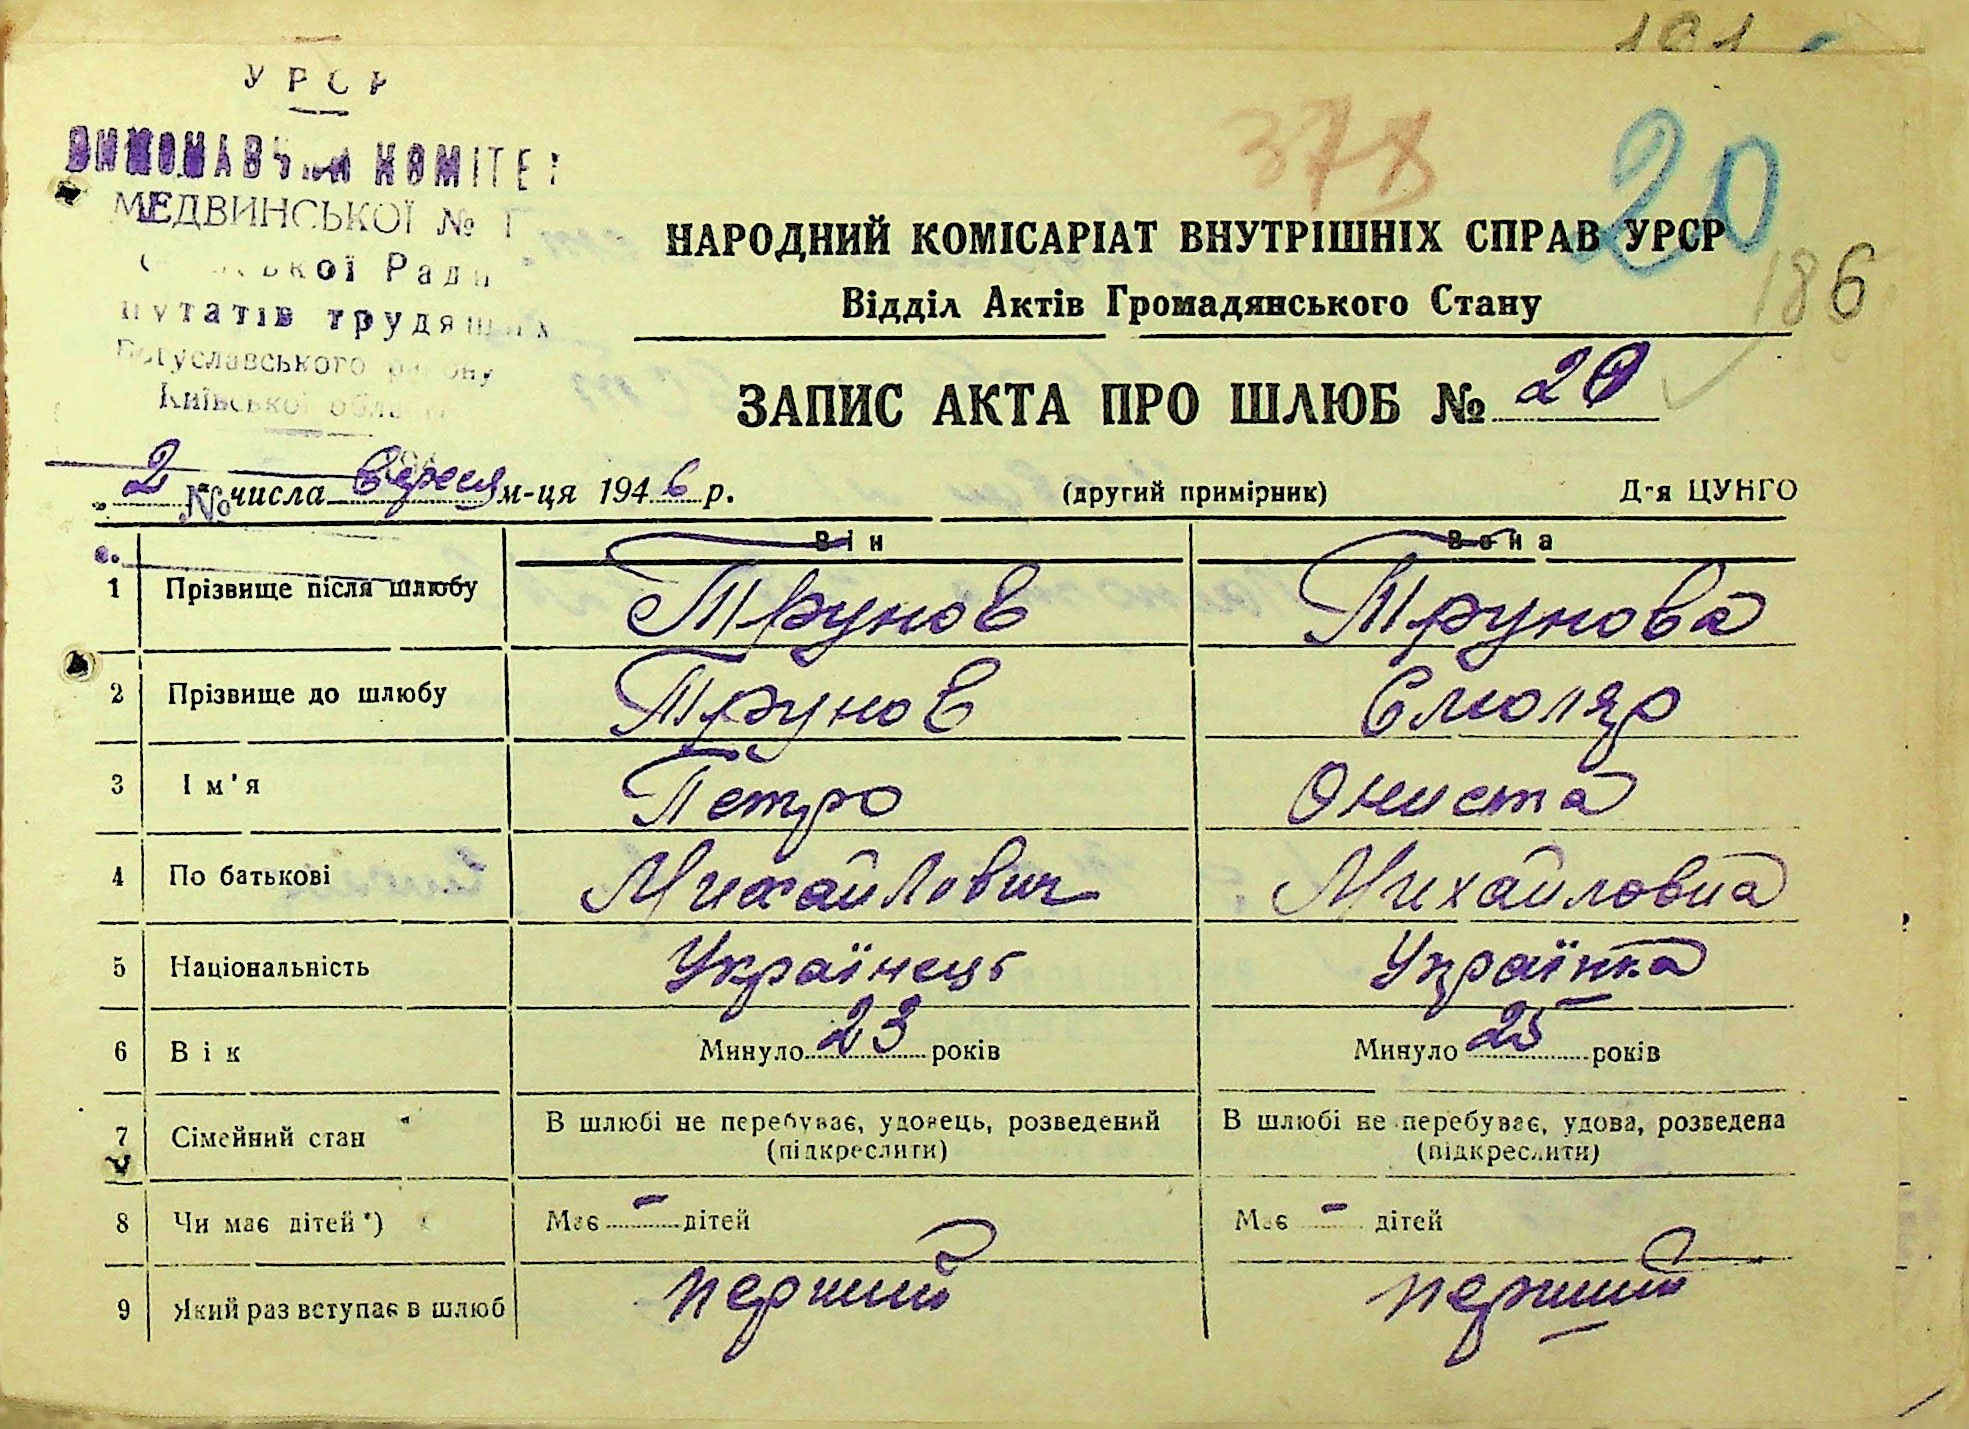 191
УРСР
378
20
ВИКОНАВЧИЙ КОМІТЕТ
МЕДВИНСЬКОЇ № 1
Ради
путатів трудящих
Богуславського району
Київської області
НАРОДНИЙ КОМІСАРІАТ ВНУТРІШНІХ СПРАВ УРСР
186
Відділ Актів Громадянського Стану
ЗАПИС АКТА ПРО ШЛЮБ № 20
„ 2 № числа вересня м-ця 1946 р. (другий примірник) Д-я ЦУНГО
Він Вона
1 Прізвище після шлюбу Трунов Трунова
2 Прізвище до шлюбу Трунов Смоляр
3 Ім'я Петро Ониста
4 По батькові Михайлович Михайловна
5 Національність Українець Українка
6 Вік Минуло 23 років Минуло 25 років
7 Сімейний стан В шлюбі не перебуває, удовець, розведений В шлюбі не перебуває, удова, розведена
(підкреслити) (підкреслити)
8 Чи має дітей *) Має – дітей Має – дітей
9 Який раз вступає в шлюб перший перший